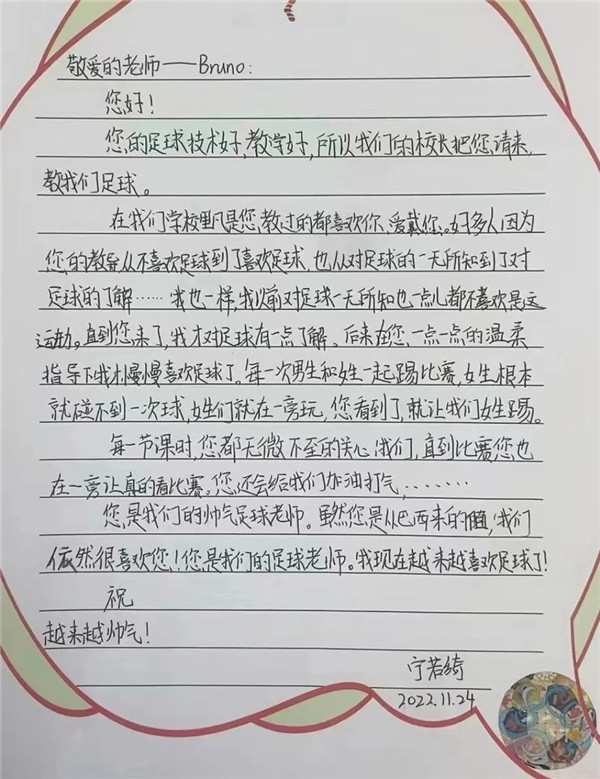 敬爱的老师——Bruno:
您好!
您的足球技术好,教学好,所以我们的校长把您请来
教我们足球。
在我们学校里凡是您教过的都喜欢你、爱戴你。好多人因为
您的教导从不喜欢足球到了喜欢足球,也从对足球的一无所知到了对
足球的了解……我也一样,我以前对足球一无所知也一点儿都不喜欢是这
运动。直到您来了,我才对足球有一点了解。后来在您一点一点的温柔
指导下我才慢慢喜欢足球了。每一次男生和女生一起踢比赛,女生根本
就碰不到一次球,女生们就在一旁玩,您看到了,就让我们女生踢。
每一节课时,您都无微不至的关心我们,直到比赛您也
在一旁认真的看比赛。您还会给我们加油打气,……
您是我们的帅气足球老师。虽然您是从巴西来的,我们
依然很喜欢您!您是我们的足球老师。我现在越来越喜欢足球了!
祝
越来越帅气!
宁若绮
2022.11.24